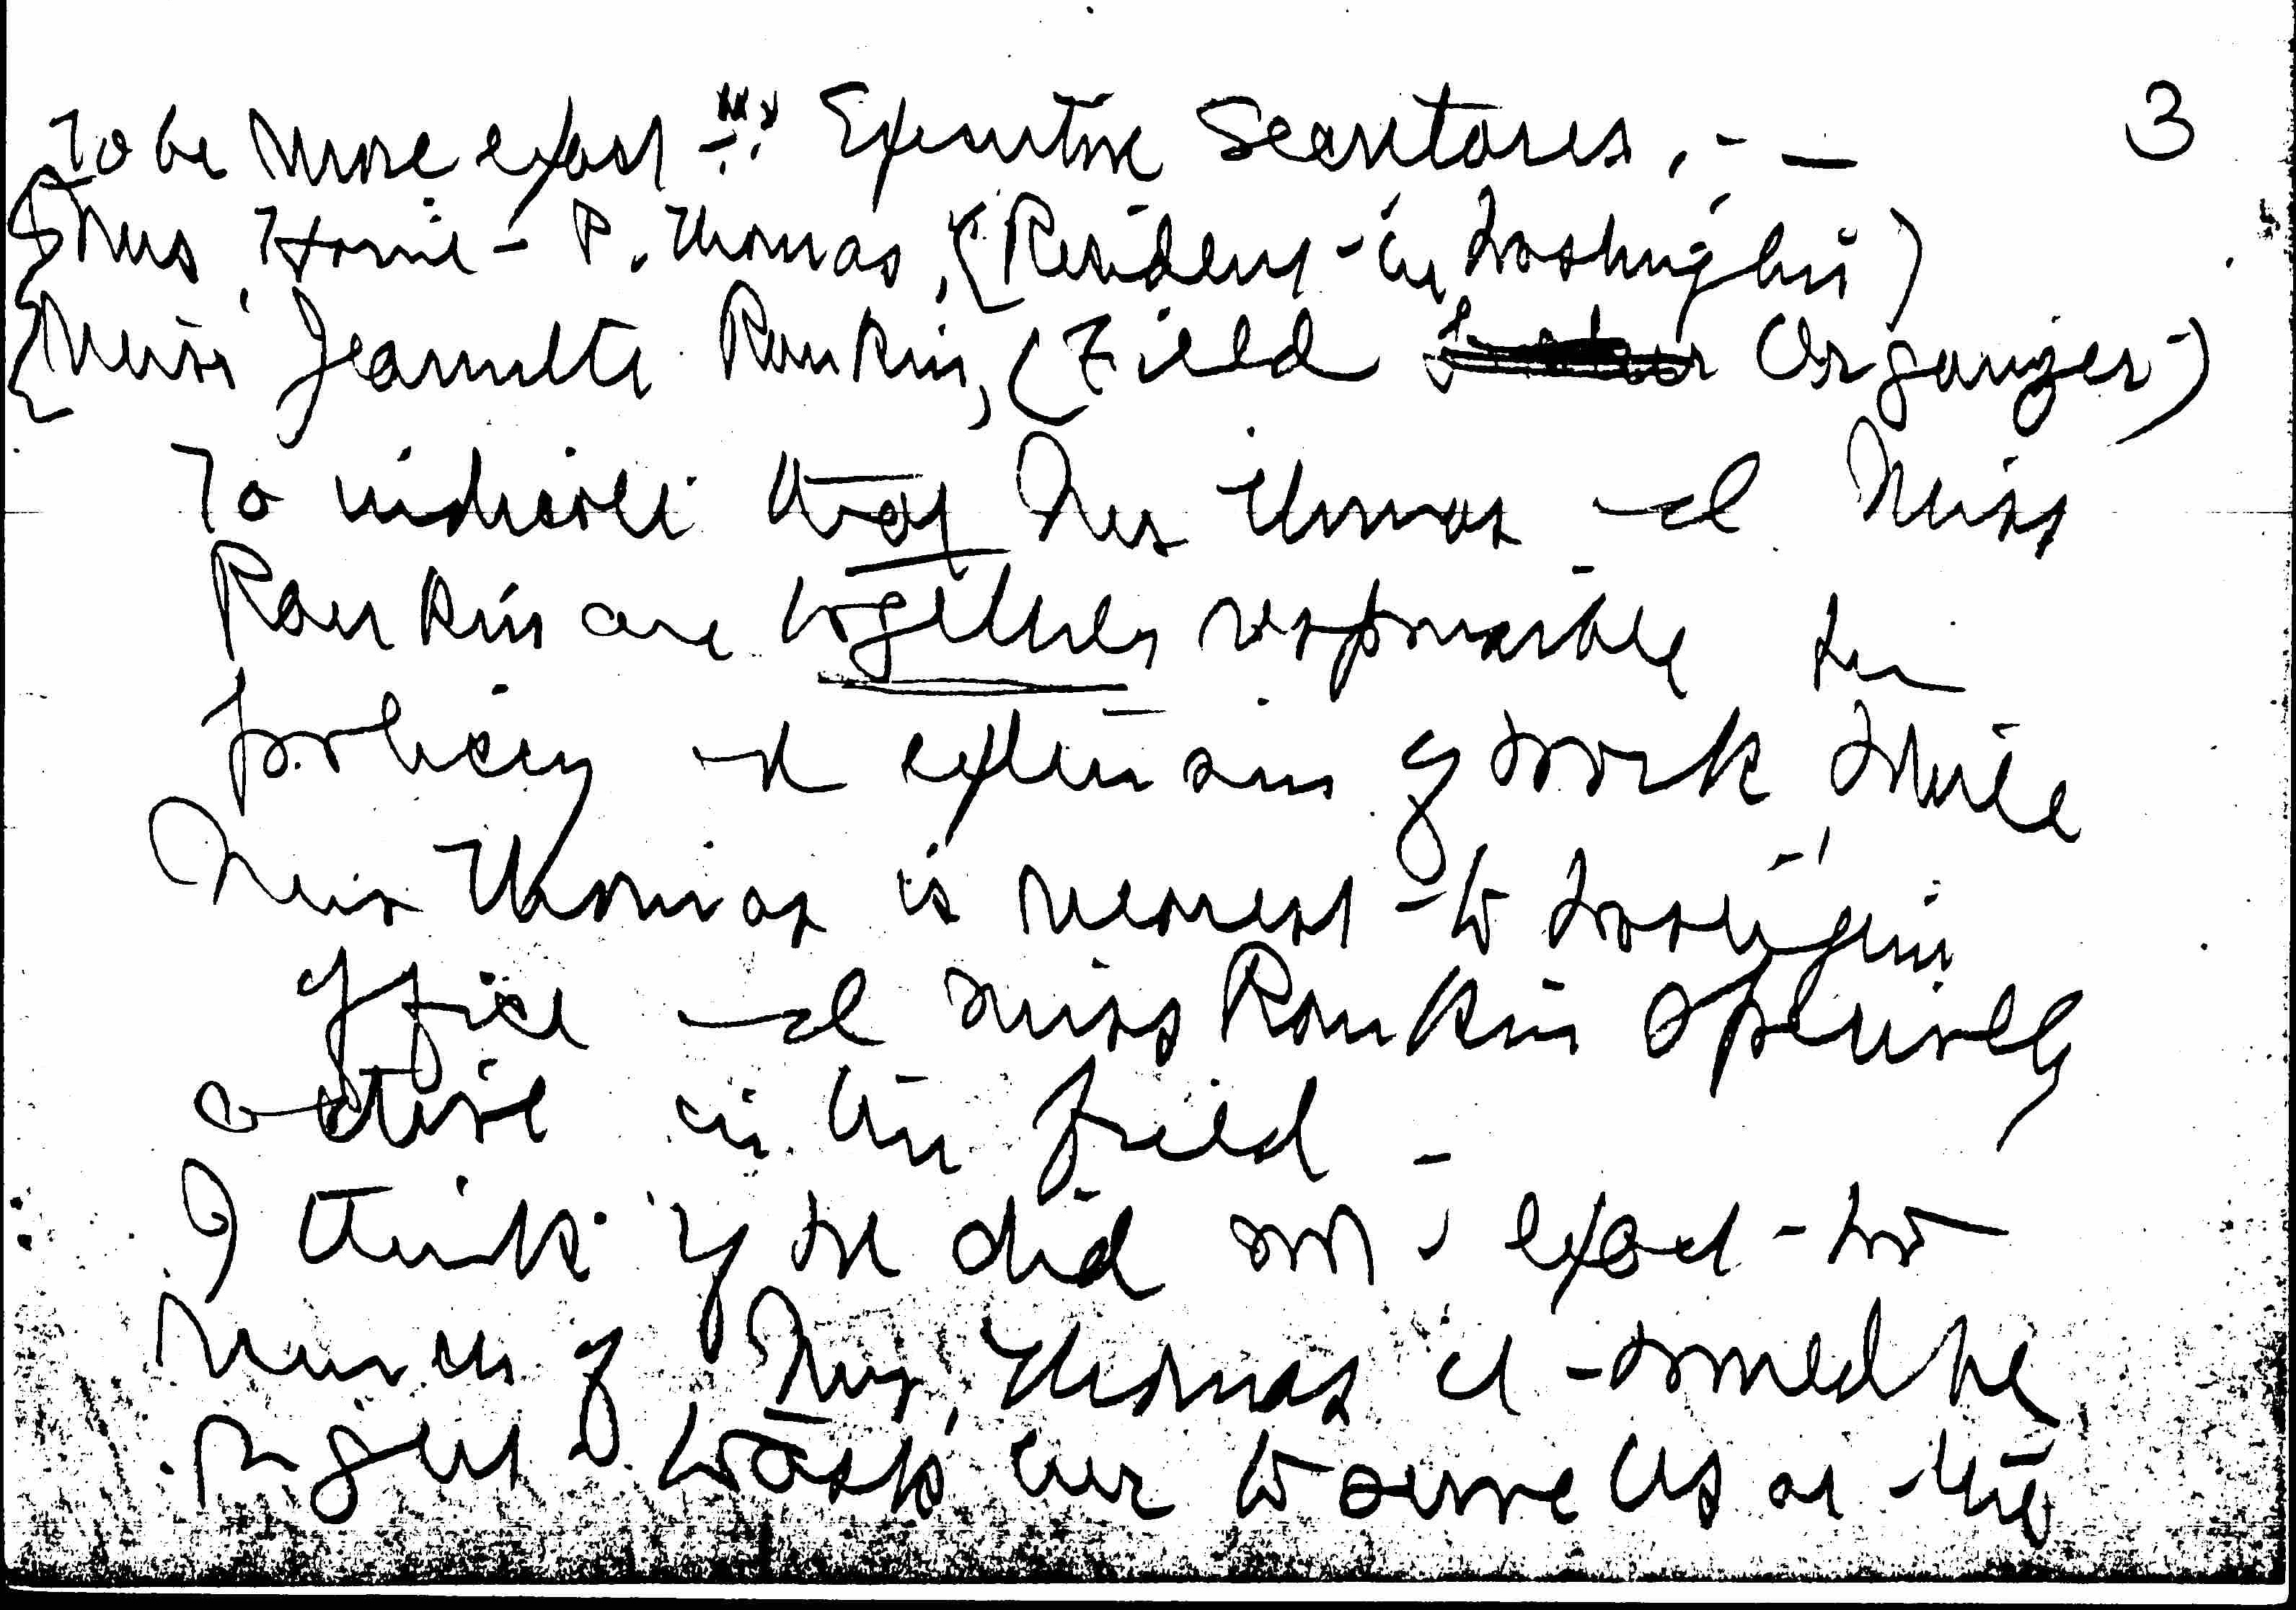 3
To be more exact -:: Executive Secretaries, - —
Mrs. Harriet P. Thomas, (Resident in Washington)
Miss Jeannette Rankin, (Field Organizer)
To indicate that Mrs Thomas and Miss
Rankin are together responsible for
policy and extension of work, while
Mrs Thomas is nearest to
office and Miss Rankin especially
active in the field -
I think if we did not
names of Mrs. Thomas it would be
right to ask her to serve us as the